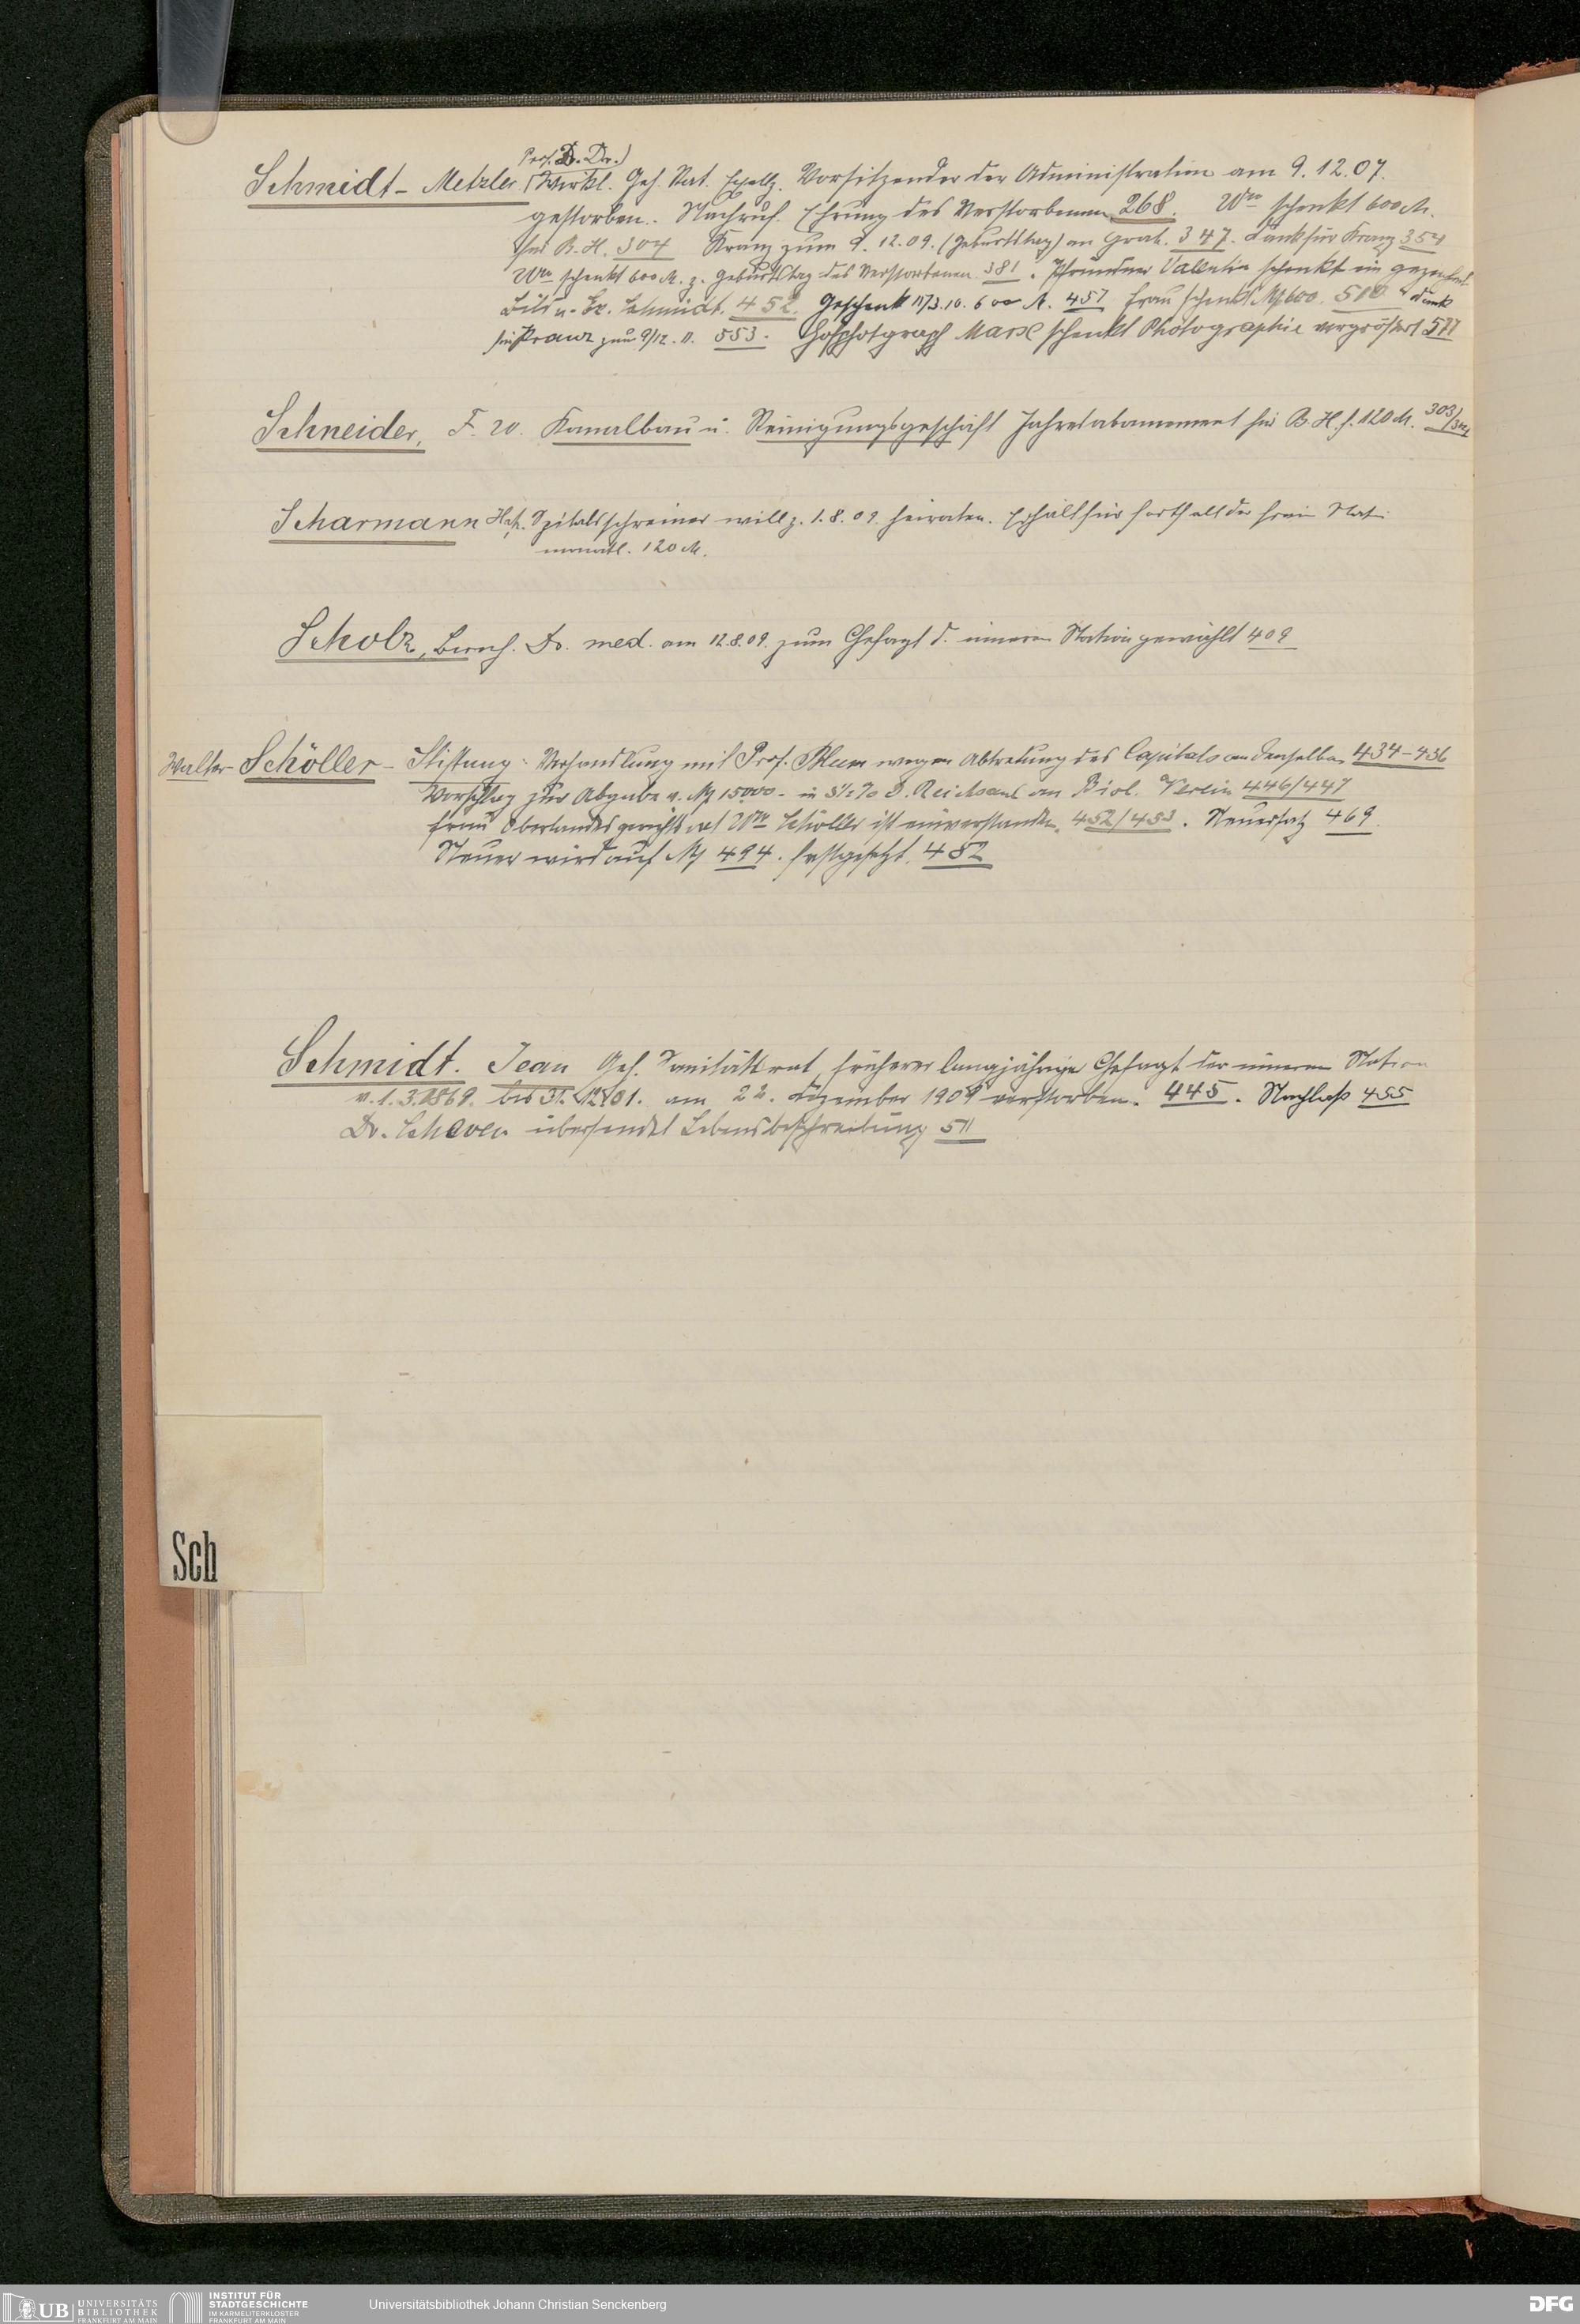 Prof. D. Dr.)
Schmidt-Metzler (Wirkl. Geh. Rat. Exellz. Vorsitzender der Administration am 9.12.07.
gestorben. Nachruf. Ehrung des Verstorbenen 268. Wwe schenkt 600 M.
für B.H. 304 Kranz zum 9.12.09. (Geburtstag) an Grab. 347. Dank für Kranz 354
Wwe schenkt 600 M. z. Geburtstag des Verstorbenen 381. Pfründner Valentin schenkt ein
Bild v. Schmidt. 452. Geschenk 11/3.10. 600 M. 457 Frau schenkt M 600. 510 Dank
für Kranz zum 9/12.11. 553. Hofphotgraph Marx schenkt Photographie vergrößert 577
Schneider, F. W. Kanalbau u. Reinigungsgeschäft Jahresabonnement für B.H. f. 120 M. 303/
Scharmann Spitalschreiner will z. 1.8.09. heiraten. Erhält für Fortfall der freien Stat.
monatl. 120 M.
Scholz, Bernh. Dr. med. am 12.8.09. zum Chefarzt d. inneren Station gewählt 409
Walter Schöller-Stiftung: Verhandlung mit Prof. Blum wegen Abtretung des Capitals an denselben 434-436
Vorschlag zur Abgabe v. M 15000.- in 3½% D. Reichsanl an Biol. Verein 446/447
Frau Oberlandesgerichtsrat Wwe Schöller ist einverstanden. 452/453. Steuersatz 469.
Steuer wird auf M 494. festgesetzt. 482
Schmidt. Jean Geh. Sanitätsrat, früherer langjähriger Chefarzt der inneren Station
v. 1.3.1869. bis 31.12.01. am 22. Dezember 1909 verstorben. 445. Nachlaß 455
Dr. Scheven übersendet Lebensbeschreibung 511
Sch
UB UNIVERSITÄTS
BIBLIOTHEK
FRANKFURT AM MAIN
INSTITUT FÜR
STADTGESCHICHTE
IM KARMELITERKLOSTER
FRANKFURT AM MAIN
Universitätsbibliothek Johann Christian Senckenberg
DFG